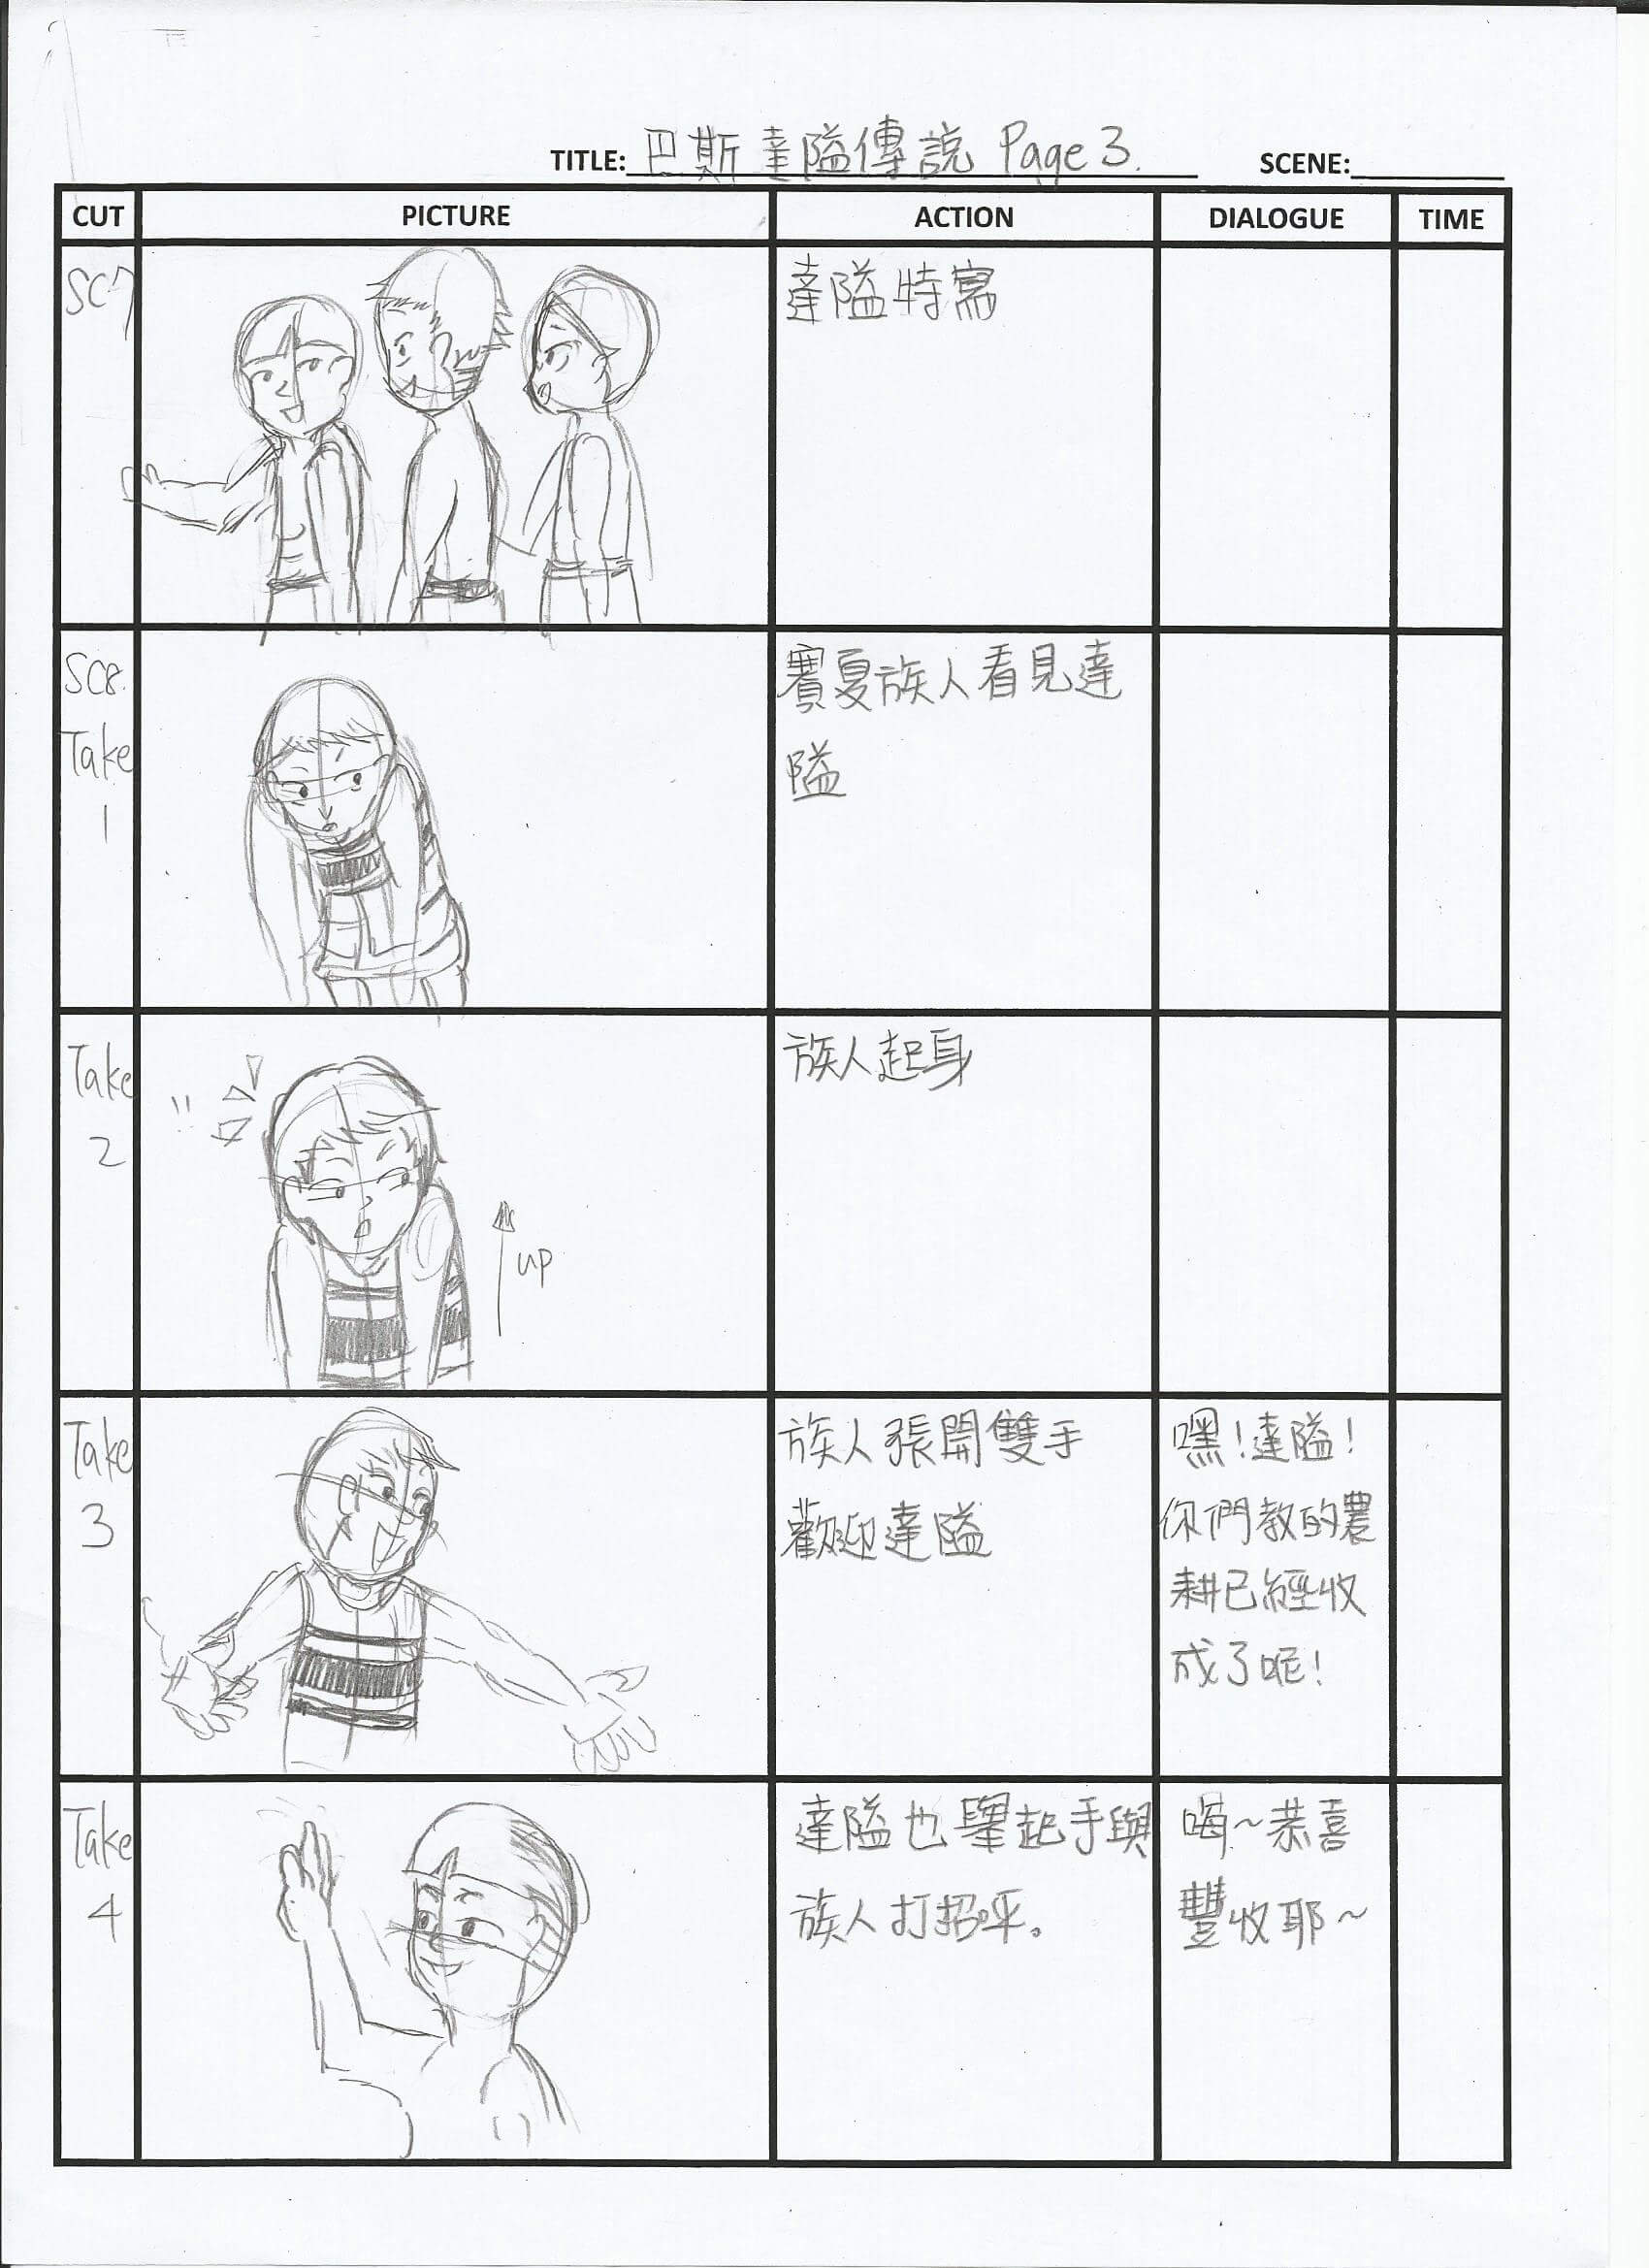 TITLE: 巴斯達隘傳說 Page 3. SCENE:
CUT PICTURE ACTION DIALOGUE TIME
SC7
達隘特寫
SC8.
Take
1
賽夏族人看見達
隘
Take
2
up
族人起身
Take
3
族人張開雙手
歡迎達隘
嘿!達隘!
你們教的農
耕已經收
成了呢!
Take
4
達隘也舉起手與
族人打招呼。
嗨~恭喜
豐收耶~